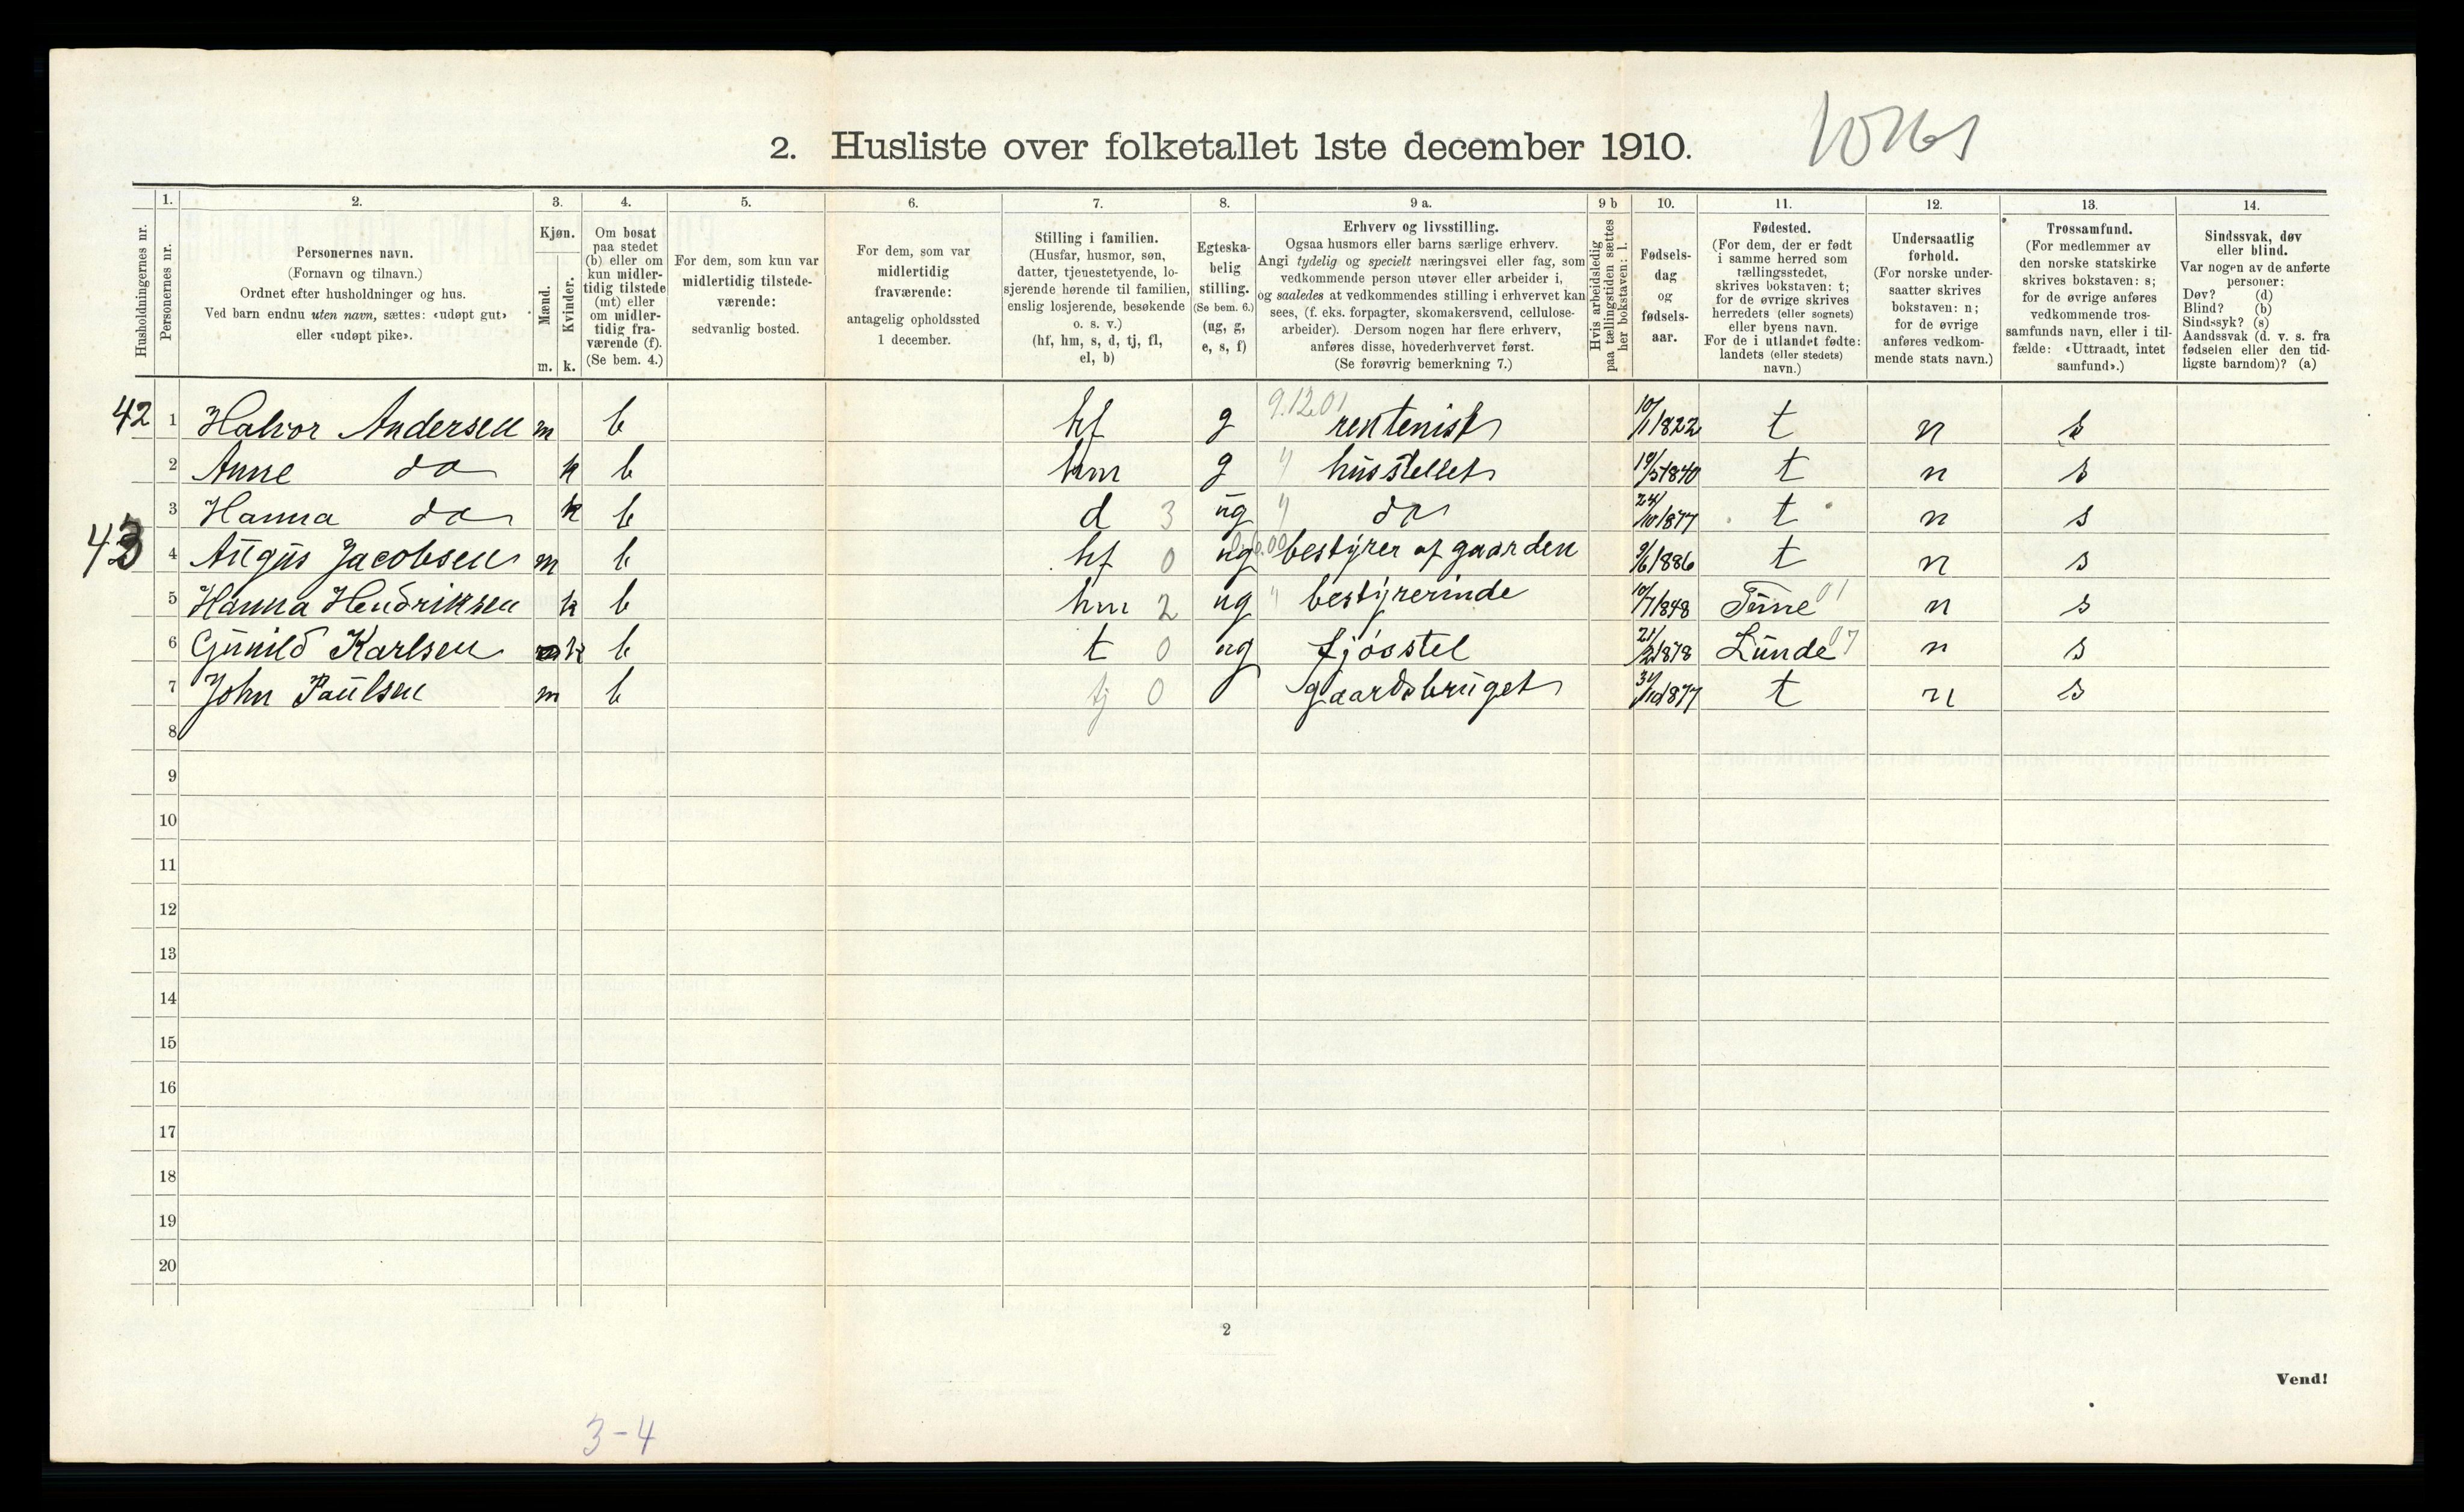 2. Husliste over folketallet 1ste december 1910.
Husholdningernes nr.
1. Personernes nr.
2. Personernes navn. (Fornavn og tilnavn.) Ordnet efter husholdninger og hus. Ved barn endnu uten navn, sættes: «udøpt gut» eller «udøpt pike».
3. Kjøn. Mænd. m. Kvinder. k.
4. Om bosat paa stedet (b) eller om kun midlertidig tilstede (mt) eller om midlertidig fraværende (f). (Se bem. 4.)
5. For dem, som kun var midlertidig tilstedeværende: sedvanlig bosted.
6. For dem, som var midlertidig fraværende: antagelig opholdssted 1 december.
7. Stilling i familien. (Husfar, husmor, søn, datter, tjenestetyende, losjerende hørende til familien, enslig losjerende, besøkende o. s. v.) (hf, hm, s, d, tj, fl, el, b)
8. Egteskabelig stilling. (Se bem. 6.) (ug, g, e, s, f)
9 a. Erhverv og livsstilling. Ogsaa husmors eller barns særlige erhverv. Angi tydelig og specielt næringsvei eller fag, som vedkommende person utøver eller arbeider i, og saaledes at vedkommendes stilling i erhvervet kan sees, (f. eks. forpagter, skomakersvend, cellulosearbeider). Dersom nogen har flere erhverv, anføres disse, hovederhvervet først. (Se forøvrig bemerkning 7.)
9 b Hvis arbeidsledig paa tællingstiden sættes her bokstaven: l.
10. Fødselsdag og fødselsaar.
11. Fødested. (For dem, der er født i samme herred som tællingsstedet, skrives bokstaven: t; for de øvrige skrives herredets (eller sognets) eller byens navn. For de i utlandet fødte: landets (eller stedets) navn.)
12. Undersaatlig forhold. (For norske undersaatter skrives bokstaven: n; for de øvrige anføres vedkommende stats navn.)
13. Trossamfund. (For medlemmer av den norske statskirke skrives bokstaven: s; for de øvrige anføres vedkommende trossamfunds navn, eller i tilfælde: «Uttraadt, intet samfund».)
14. Sindssvak, døv eller blind. Var nogen av de anførte personer: Døv? (d) Blind? (b) Sindssyk? (s) Aandssvak (d. v. s. fra fødselen eller den tidligste barndom)? (a)
42 1 Halvor Andersen m b hf g 9.12.01 rentenist 10/1 1822 t n s
2 Anne do k b hm g " husstellet 19/5 1840 t n s
3 Hanna do k b d 3 ug " do 24/10 1877 t n s
43 4 Augus Jacobsen m b hf 0 ug bestyrer af gaarden 9/6 1886 t n s
5 Hanna Hendriksen k b hm 2 ug " bestyrerinde 10/7 1848 Tinne 01 n s
6 Gunild Karlsen k b t 0 ug fjøsstel 21/2 1878 Lunde 07 n s
7 John Paulsen m b tj 0 gaardsbruget 3/10 1877 t n s
8
9
10
11
12
13
14
15
16
17
18
19
20
2
Vend!
3-4